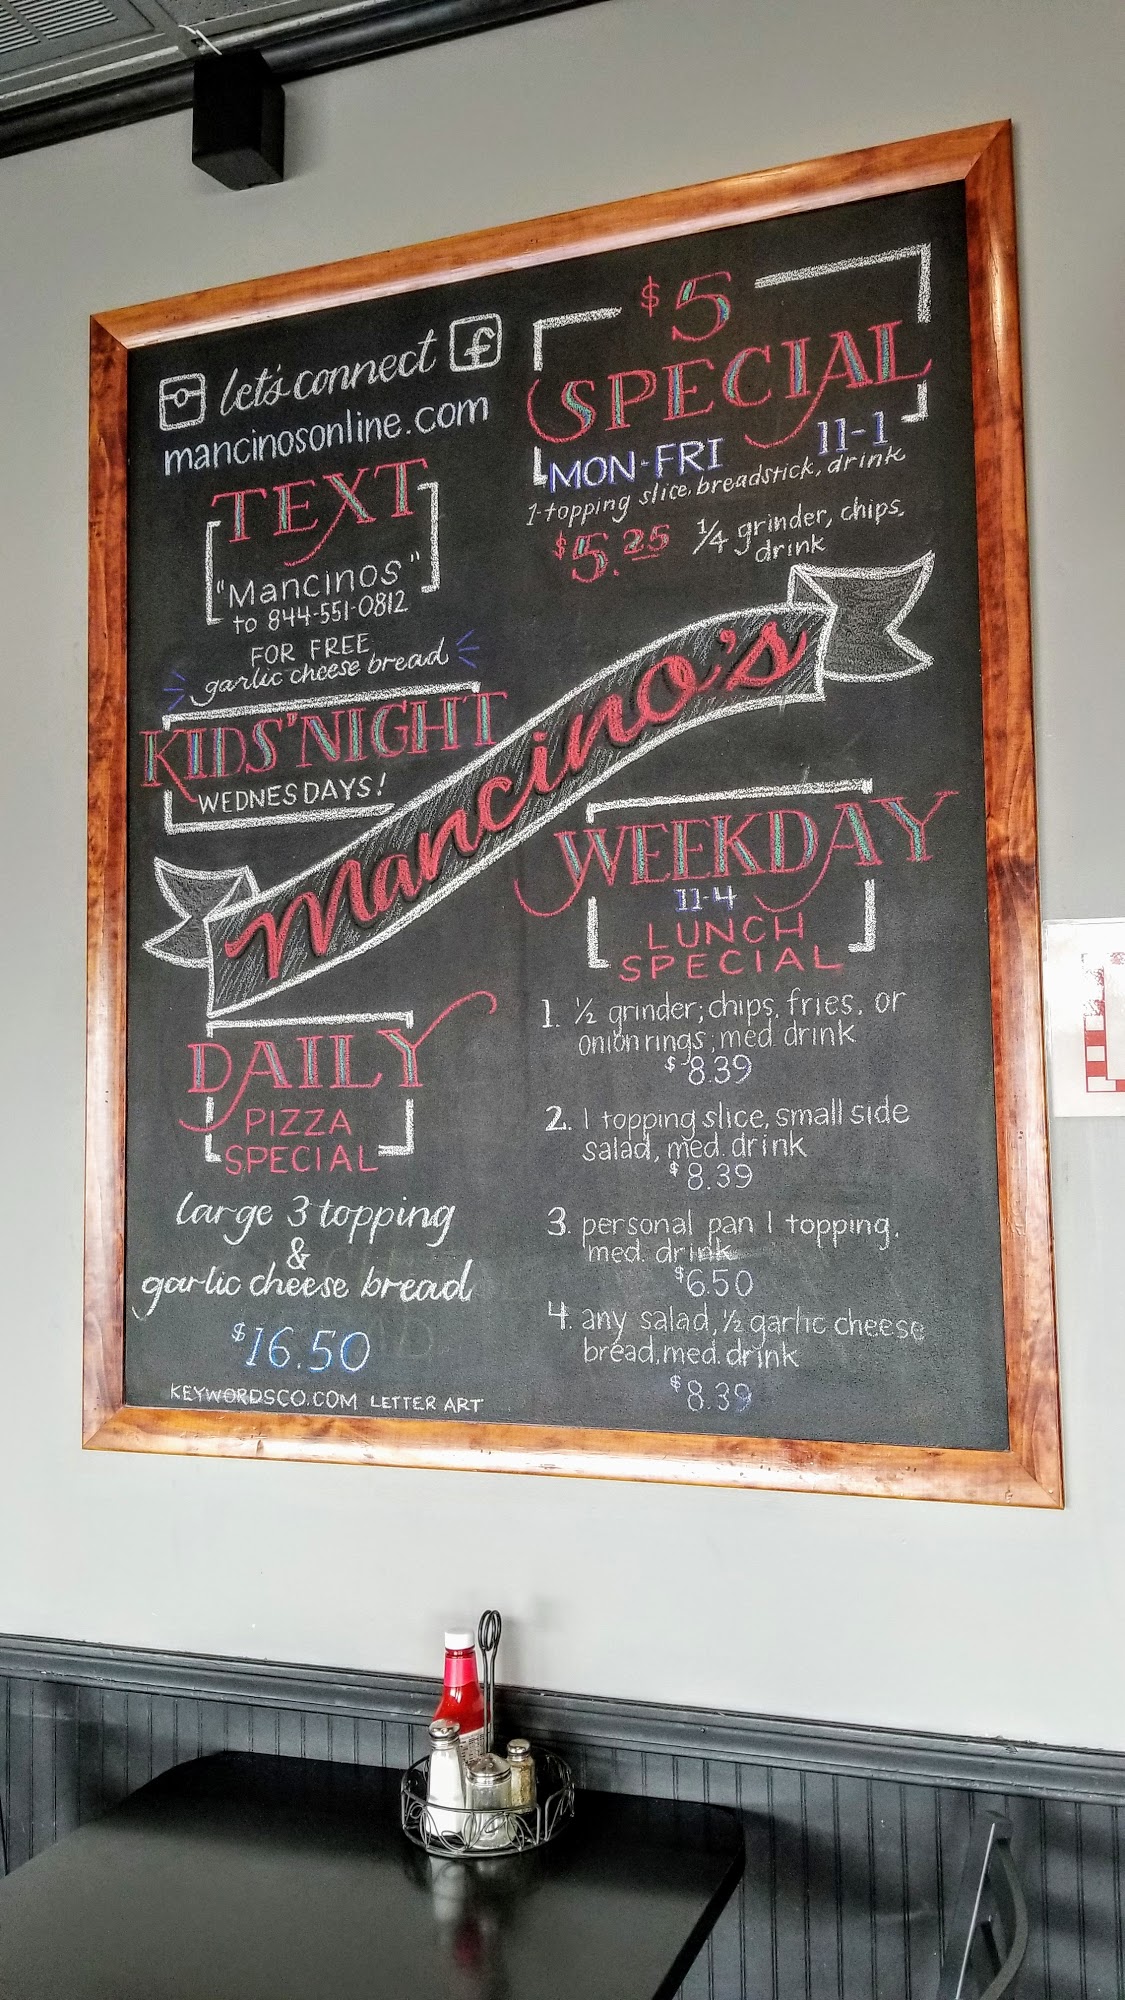 let's connect
mancinosonline.com
TEXT
"Mancinos"
to 844-551-0812
FOR FREE
garlic cheese bread
KIDS' NIGHT
WEDNESDAYS!
$5
SPECIAL
MON-FRI 11-1
1-topping slice, breadstick, drink
$5.25 1/4 grinder, chips,
drink
Mancino's
DAILY
PIZZA
SPECIAL
large 3 topping
&
garlic cheese bread
$16.50
KEYWORDSCO.COM LETTER ART
WEEKDAY
11-4
LUNCH
SPECIAL
1. 1/2 grinder; chips, fries, or
onion rings; med. drink
$8.39
2. 1 topping slice, small side
salad, med. drink
$8.39
3. personal pan 1 topping,
med. drink
$6.50
4. any salad, 1/2 garlic cheese
bread, med. drink
$8.39